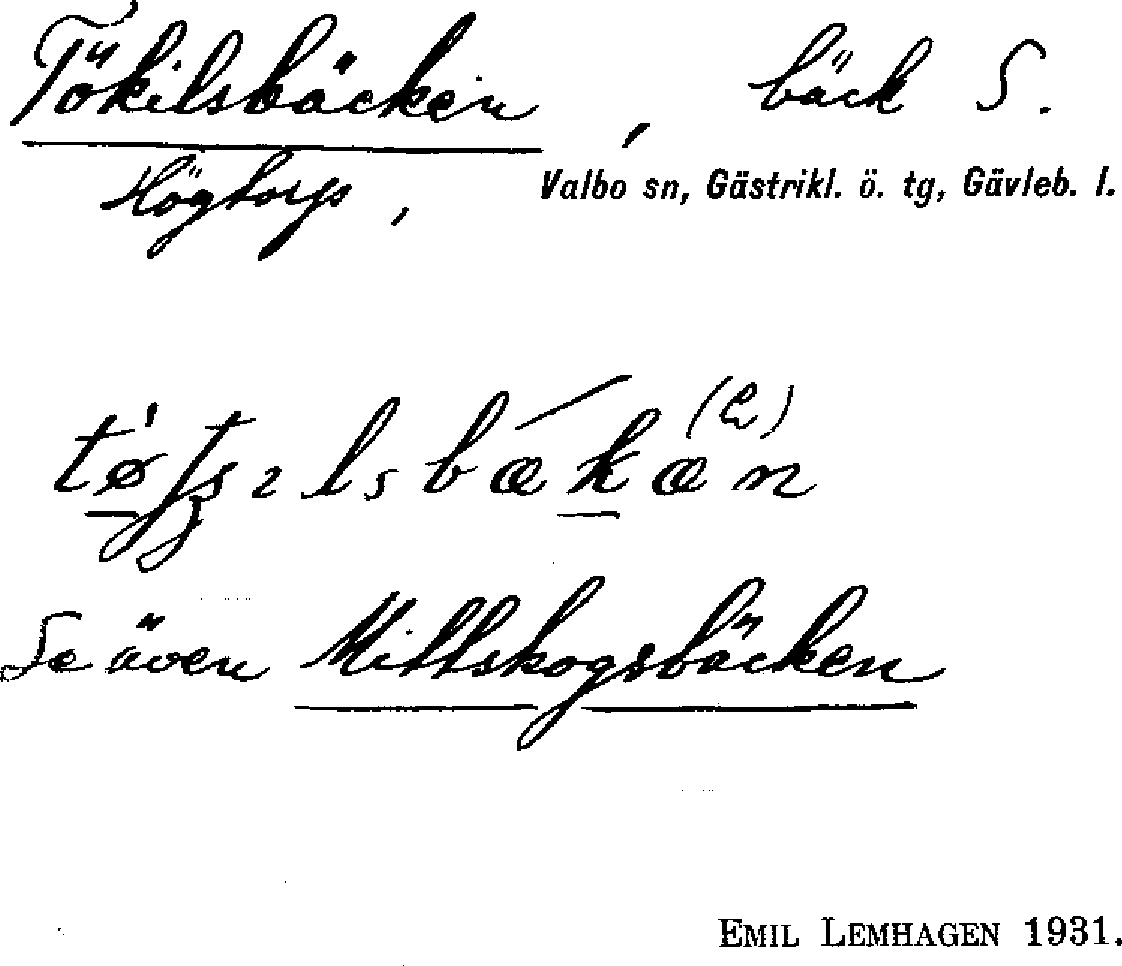 Tökilsbäcken, bäck S.
Högtorp, Valbo sn, Gästrikl. ö. tg, Gävleb. l.
Se även Mittskogsbäcken
EMIL LEMHAGEN 1931.